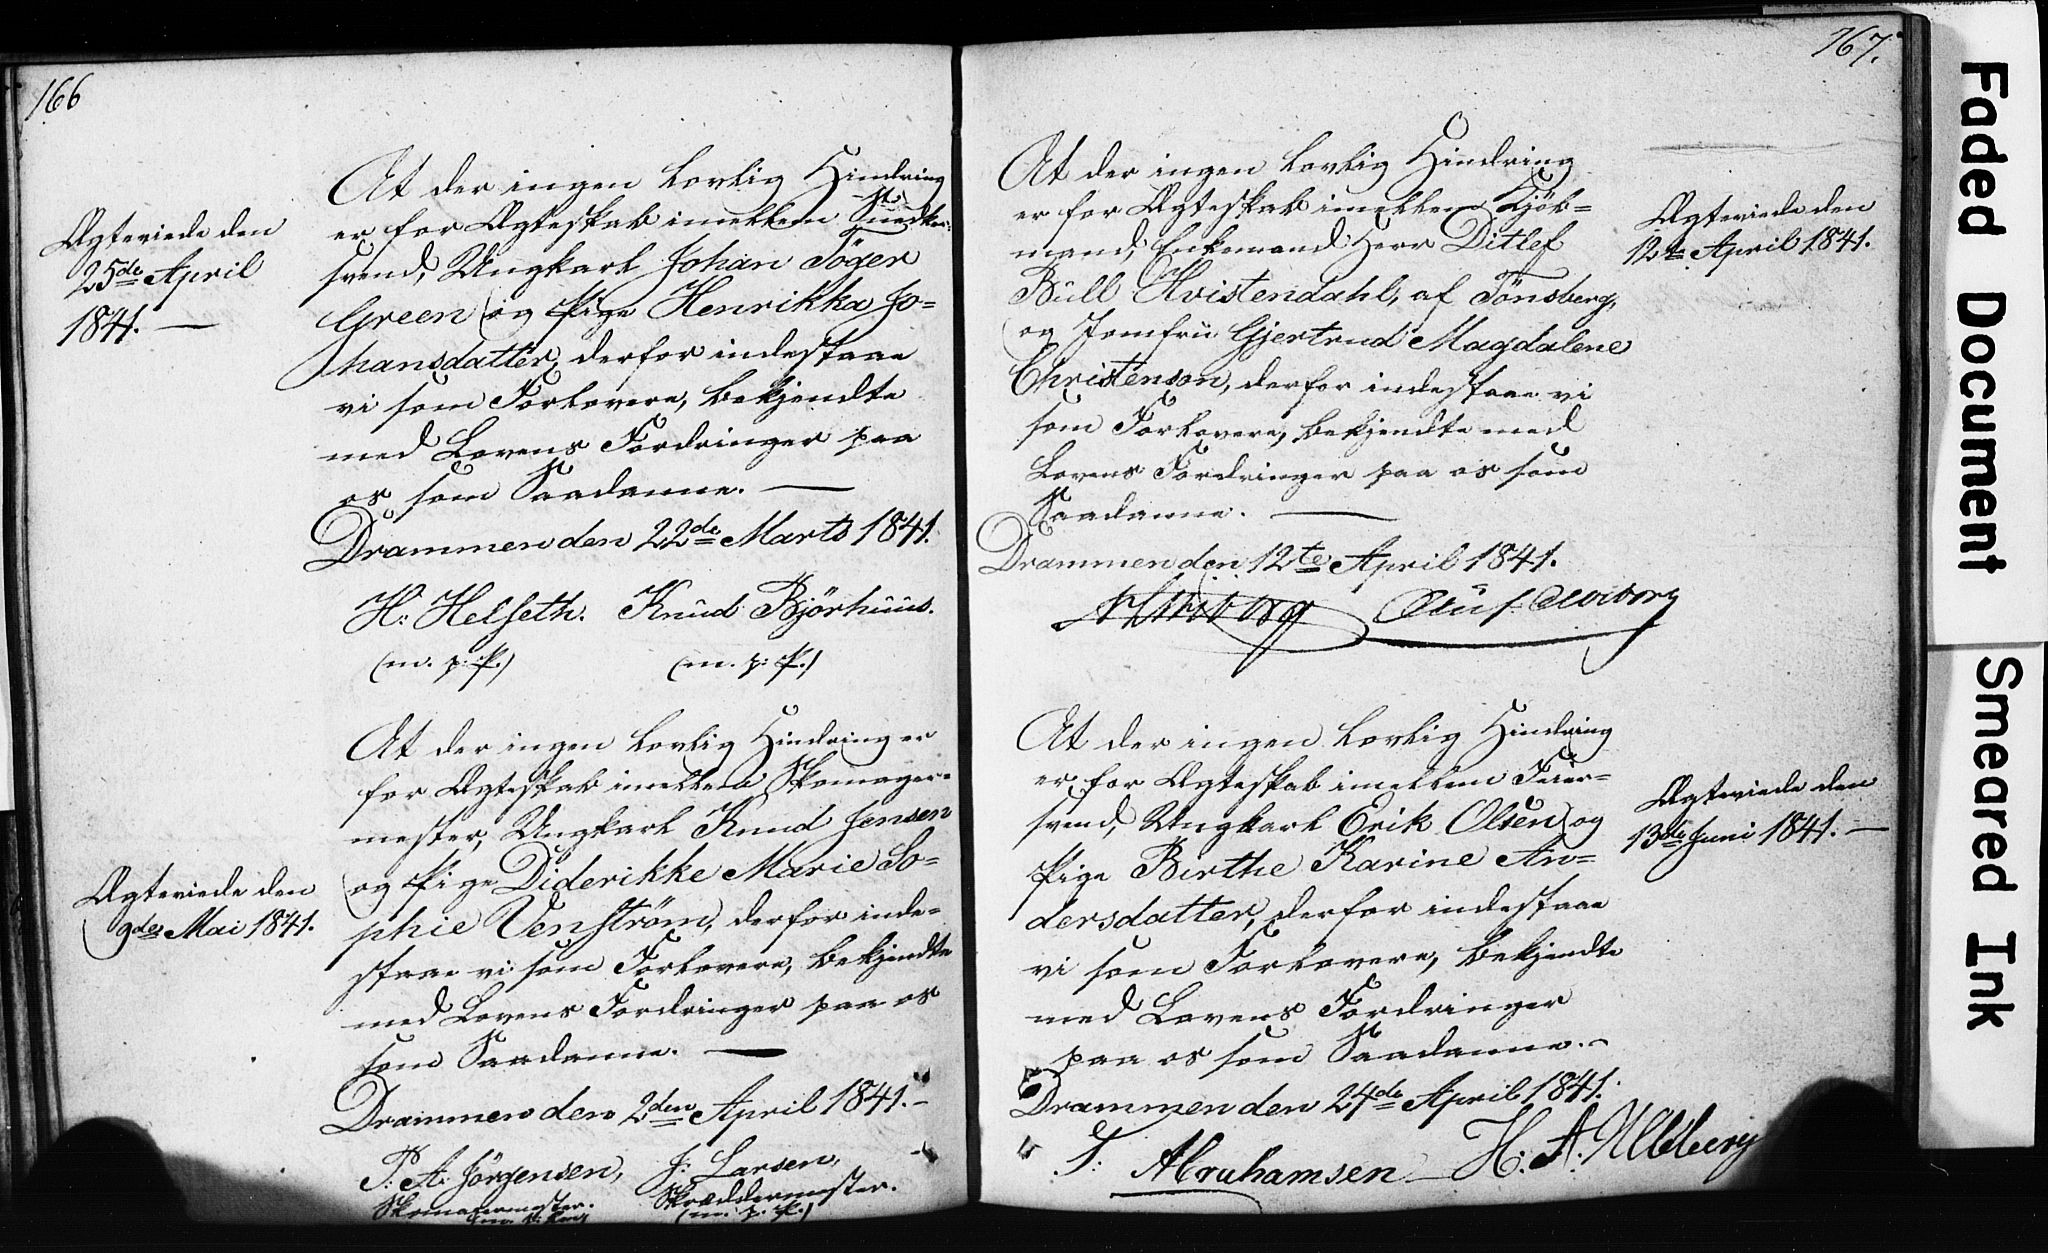 166
At der ingen lovlig Hindring
er for Ægteskab imellem Snedker-
svend, Ungkarl Johan Töger
Green og Pige Henrikka Jo=
hansdatter, derfor indestaae
vi som Forlovere, bekjendte
med Lovens Fordringer paa
os som Saadanne. —
Drammen den 22de Marts 1841.
H: Helseth. Knud Bjørhuus.
(m. p: P.) (m. p: P.)
Ægteviede den
25de April
1841. —
At der ingen lovlig Hindring er
for Ægteskab imellem Skomager=
mester, Ungkarl Knud Jensen
og Pige Diderikke Marie So=
phie Venström, derfor inde=
staae vi som Forlovere, bekjendte
med Lovens Fordringer paa os
som Saadanne. —
Drammen den 2den April 1841. –
P. A. Jörgensen, J. Larsen,
Skomagermester. Skræddermester.
(m. p. P.)
Ægteviede den
9de Mai 1841.
167.
At der ingen lovlig Hindring
er for Ægteskab imellem Kjöb=
mand, Enkemand Herr Ditlef
Bull Hvistendahl, af Tönsberg,
og Jomfru Gjertrud Magdalene
Christenson, derfor indestaae vi
som Forlovere, bekjendte med
Lovens Fordringer paa os som
Saadanne. —
Drammen den 12te April 1841.
Oluf
Ægteviede den
12te April 1841.
At der ingen lovlig Hindring
er for Ægteskab imellem Feier=
svend, Ungkarl Erik Olsen og
Pige Birthe Karine An=
dersdatter, derfor indestaae
vi som Forlovere, bekjendte
med Lovens Fordringer
paa os som Saadanne. –
Drammen den 24de April 1841.
Abrahamsen H. A.
Ægteviede den
13de Juni 1841. —
Faded Document
Smeared Ink